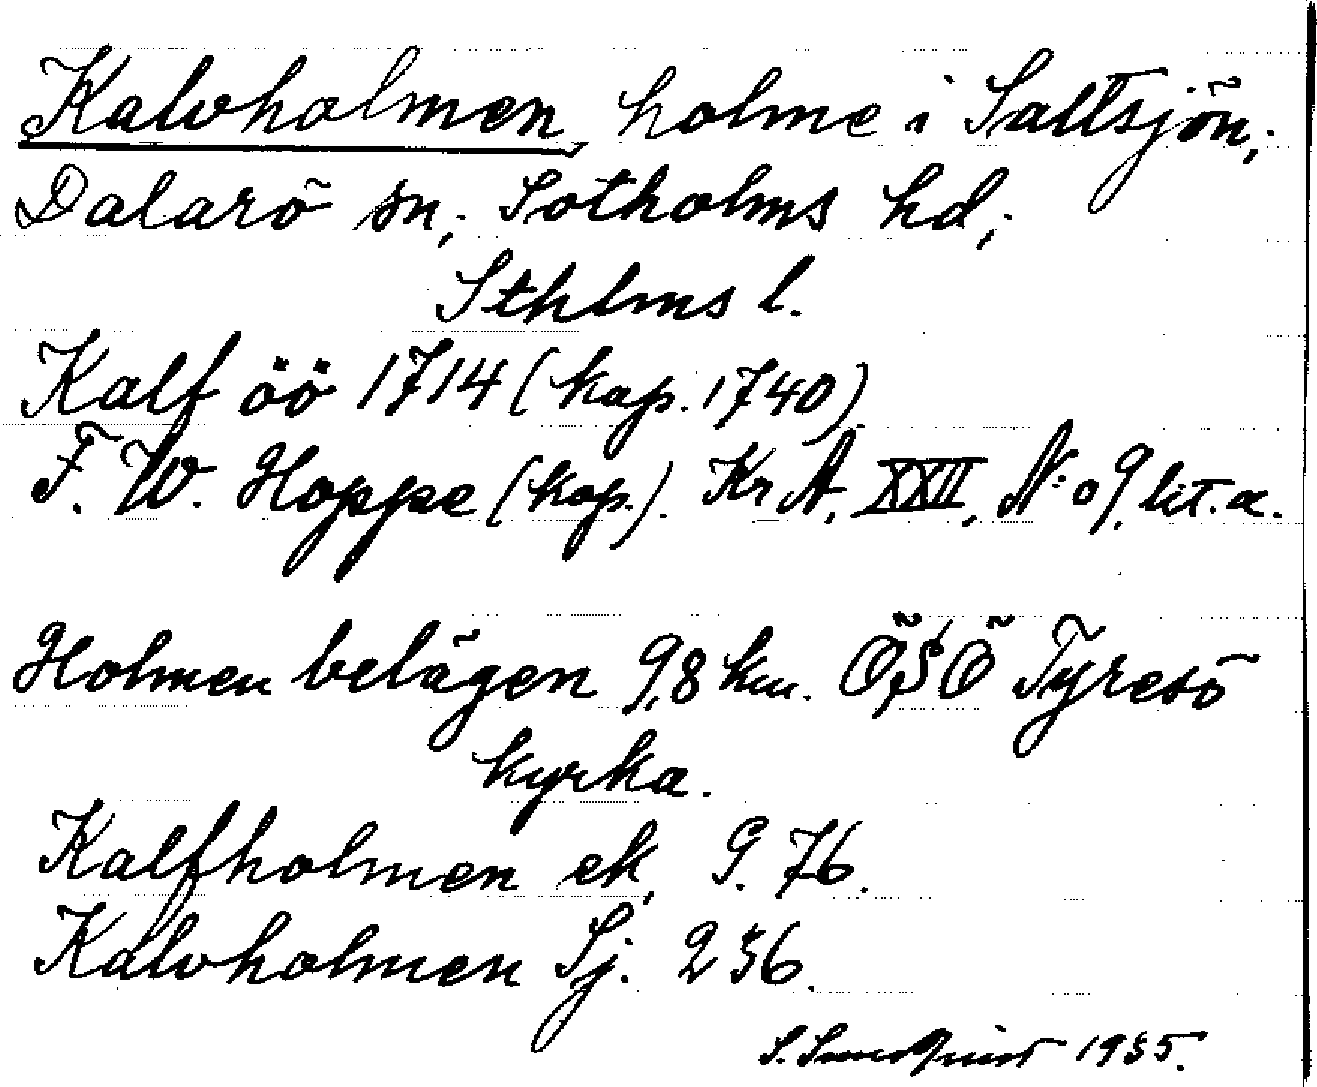 Kalvholmen, holme i Saltsjön,
Dalarö sn, Sotholms hd,
Sthlms l.
Kalf öö 1714 (kop. 1740)
F. W. Hoppe (kop.). Kr A, XXII, N:o 9, lit. a.
Holmen belägen 9,8 km. ÖSÖ Tyresö
kyrka.
Kalfholmen ek, 9. 76.
Kalvholmen Sj. 236.
1935.